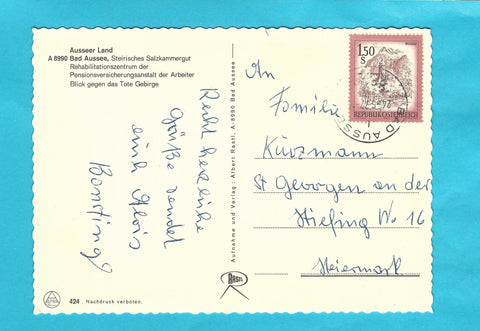 Ausseer Land
A 8990 Bad Aussee, Steirisches Salzkammergut
Rehabilitationszentrum der
Pensionsversicherungsanstalt der Arbeiter
Blick gegen das Tote Gebirge
Recht herzliche
Grüße sendet
euch Alois
424 Nachdruck verboten.
Aufnahme und Verlag: Albert Rastl, A-8990 Bad Aussee
RASTL
1.50
S
REPUBLIK ÖSTERREICH
BAD AUSSEE
An
Familie
Kurzmann
St Georgen an der
Stiefing No 16
Steiermark